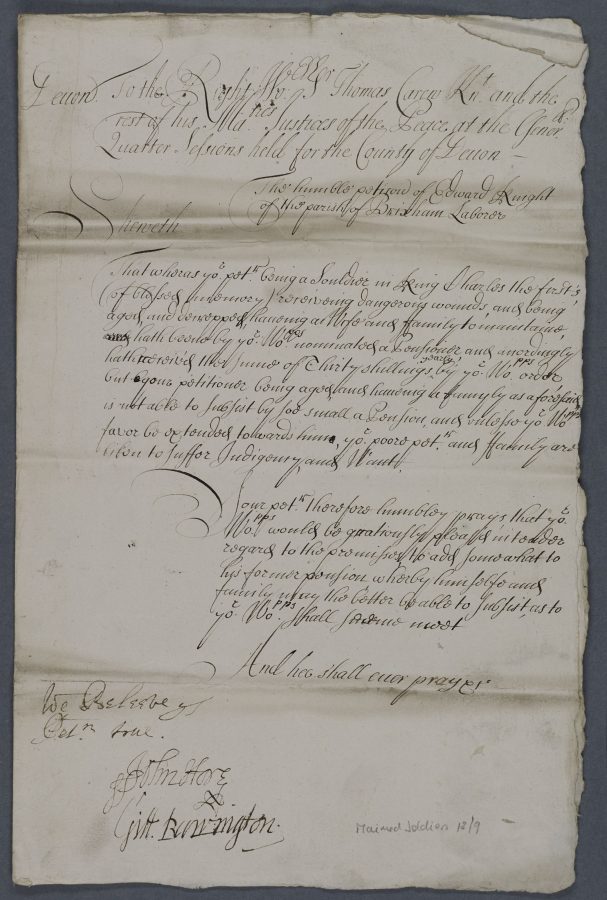 Deuon To the Right Wor:ppll Sr Thomas Carew Knt. and the
rest of his Maties Justices of the Peace at the Gener
Quatter Sessions held for the County of Deuon
The humble peticon of Edward Knight
of the parish of Brixham Laborer
Sheweth
That wheras yor. petr. being a Souldier in King Charles the first's
(of blessed memory) receiveing dangerous wounds, and being
aged and decrepped, haueing a Wife and family to maintaine,
hath beene by yor. Wopps nominated a Pensioner and acordingly
hath received the sume of Thirty shillings yearly, by yor. Wopps order,
but your petitioner being aged and haueing a family as aforesaid
is not able to subsist by soe small a Pension, and unlesse yor. Wopps
favor be extended towards him, yor. poore petr. and family are
liken to suffer Indigency and Want.
Your petr. therefore humbley prays that yor.
Wopps would be gratiously pleased in tender
regard to the premises, to add somewhat to
his former pension wherby himselfe and
family may the better be able to subsist, as to
yor. Wopps. shall seeme meet
And hee shall euer pray &c
We Beleeve ys
Petn true.
John Hore
Gitt. Burrington.
Maimed Soldiers 13/9